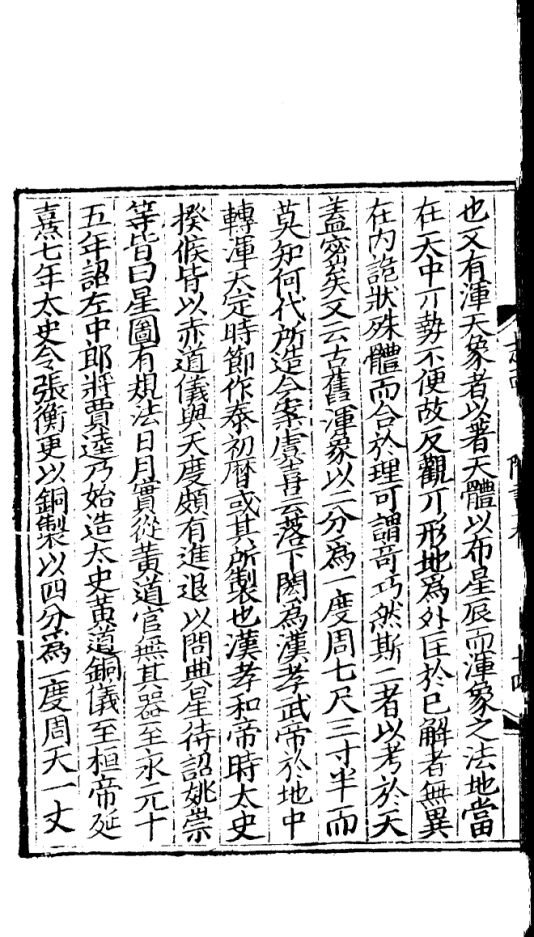 也又有渾天象者以著天體以布星辰而渾象之法地當
在天中亓勢不便故反觀亓形地爲外匡於已解者無異
在内詭狀殊體而合於理可謂竒巧然斯二者以考於天
蓋密矣又云古舊渾象以二分爲一度周七尺三寸半而
莫知何代所造今案虞喜云落下閎為漢孝武帝於地中
轉渾天定時節作泰初曆或其所製也漢孝和帝時太史
揆候皆以赤道儀與天度頗有進退以問典星待詔姚崇
等皆曰星圖有規法日月實從黄道官無其器至永元十
五年詔左中郎將賈逵乃始造太史黄道銅儀至桓帝延
熹七年太史令張衡更以銅製以四分爲一度周天一丈